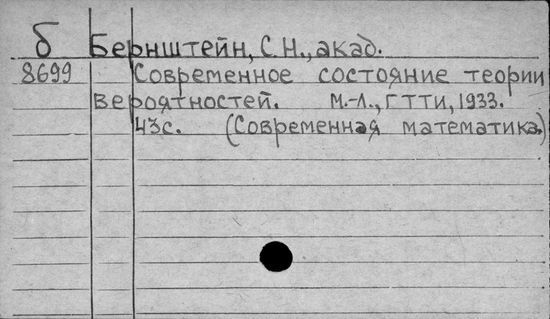 б Бернштейн, С.Н., акад.
8699 Современное состояние теории
вероятностей. М.-Л., ГТТИ, 1933.
43с. (Современная математика.)